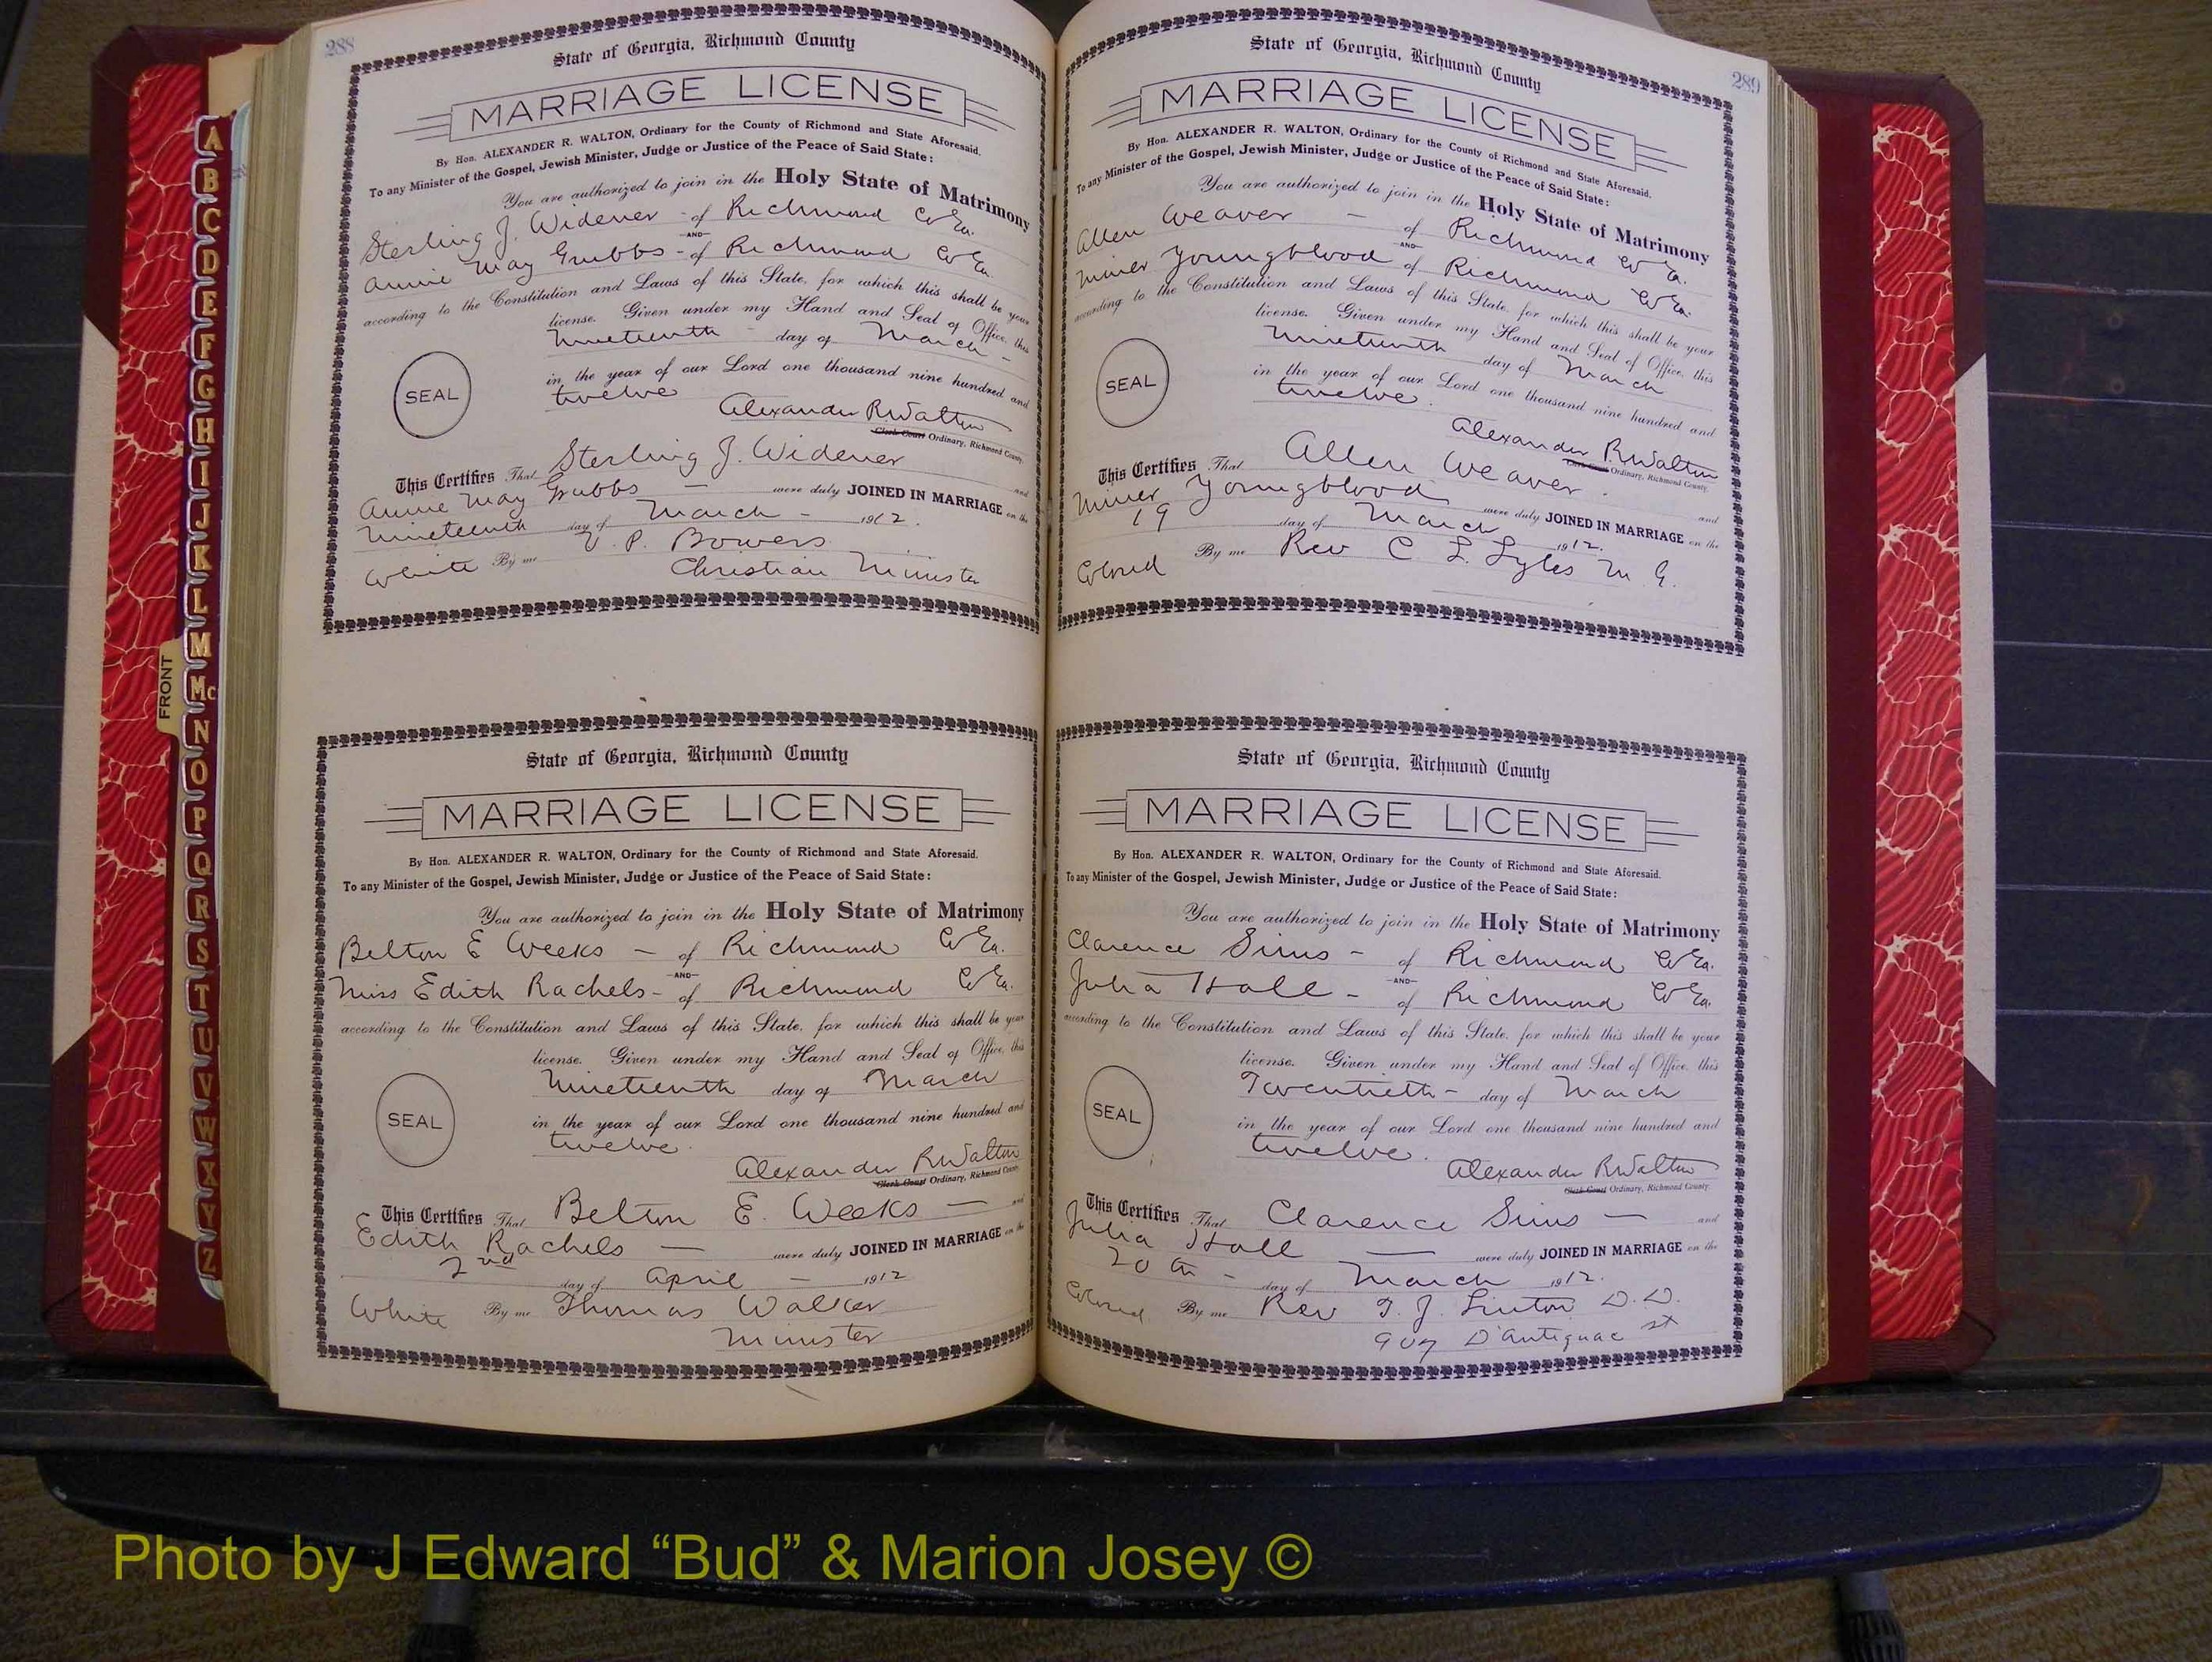 288
State of Georgia, Richmond County
MARRIAGE LICENSE
By Hon. ALEXANDER R. WALTON, Ordinary for the County of Richmond and State Aforesaid.
To any Minister of the Gospel, Jewish Minister, Judge or Justice of the Peace of Said State:
You are authorized to join in the Holy State of Matrimony
Sterling J. Widener - of Richmond Co Ga.
AND
Annie May Grubbs - of Richmond Co Ga.
according to the Constitution and Laws of this State, for which this shall be your
license. Given under my Hand and Seal of Office, this
Nineteenth - day of March -
SEAL
in the year of our Lord one thousand nine hundred and
twelve
Alexander R Walton
Clerk Court Ordinary, Richmond County.
This Certifies That Sterling J. Widener and
Annie May Grubbs - were duly JOINED IN MARRIAGE on the
Nineteenth day of March - 1912.
White By me V. P. Bowers
Christian Minister
State of Georgia, Richmond County
MARRIAGE LICENSE
By Hon. ALEXANDER R. WALTON, Ordinary for the County of Richmond and State Aforesaid.
To any Minister of the Gospel, Jewish Minister, Judge or Justice of the Peace of Said State:
You are authorized to join in the Holy State of Matrimony
Belton E Weeks - of Richmond Co Ga.
AND
Miss Edith Rachels - of Richmond Co Ga.
according to the Constitution and Laws of this State, for which this shall be your
license. Given under my Hand and Seal of Office, this
Nineteenth day of March
SEAL
in the year of our Lord one thousand nine hundred and
twelve.
Alexander R Walton
Clerk Court Ordinary, Richmond County
This Certifies That Belton E. Weeks - and
Edith Rachels - were duly JOINED IN MARRIAGE on the
2nd day of April - 1912
White By me Thomas Walker
Minister
289
State of Georgia, Richmond County
MARRIAGE LICENSE
By Hon. ALEXANDER R. WALTON, Ordinary for the County of Richmond and State Aforesaid.
To any Minister of the Gospel, Jewish Minister, Judge or Justice of the Peace of Said State:
You are authorized to join in the Holy State of Matrimony
Allen Weaver - of Richmond Co Ga.
AND
Miner Youngblood of Richmond Co Ga.
according to the Constitution and Laws of this State, for which this shall be your
license. Given under my Hand and Seal of Office, this
Nineteenth day of March
SEAL
in the year of our Lord one thousand nine hundred and
twelve.
Alexander R Walton
Clerk Court Ordinary, Richmond County.
This Certifies That Allen Weaver. and
Miner Youngblood were duly JOINED IN MARRIAGE on the
19 day of March 1912.
Colored By me Rev C L. Lyles M. G.
State of Georgia, Richmond County
MARRIAGE LICENSE
By Hon. ALEXANDER R. WALTON, Ordinary for the County of Richmond and State Aforesaid.
To any Minister of the Gospel, Jewish Minister, Judge or Justice of the Peace of Said State:
You are authorized to join in the Holy State of Matrimony
Clarence Sims - of Richmond Co Ga.
AND
Julia Hall - of Richmond Co Ga.
according to the Constitution and Laws of this State, for which this shall be your
license. Given under my Hand and Seal of Office, this
Twentieth - day of March
SEAL
in the year of our Lord one thousand nine hundred and
twelve.
Alexander R Walton
Clerk Court Ordinary, Richmond County
This Certifies That Clarence Sims - and
Julia Hall - were duly JOINED IN MARRIAGE on the
20 th - day of March 1912.
Colored By me Rev T. J. Linton D.D.
907 D'Antignac st
A
B
C
D
E
F
G
H
I
J
K
L
M
Mc
N
O
P
Q
R
S
T
U
V
W
X
Y
Z
FRONT
Photo by J Edward “Bud” & Marion Josey ©